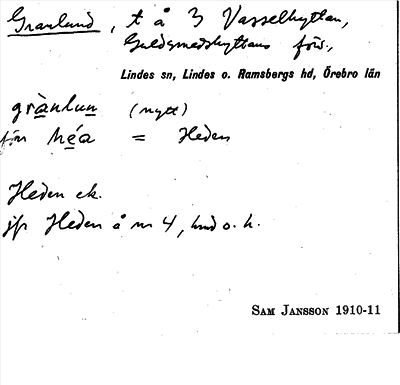 Granlund, t å 3 Vasselhyttan,
Guldsmedshyttans förs.,
Lindes sn, Lindes o. Ramsbergs hd, Örebro län
grànlun (nytt)
förr héa = Heden
Heden ek.
jfr Heden å nr 4, hd o. h.
SAM JANSSON 1910-11